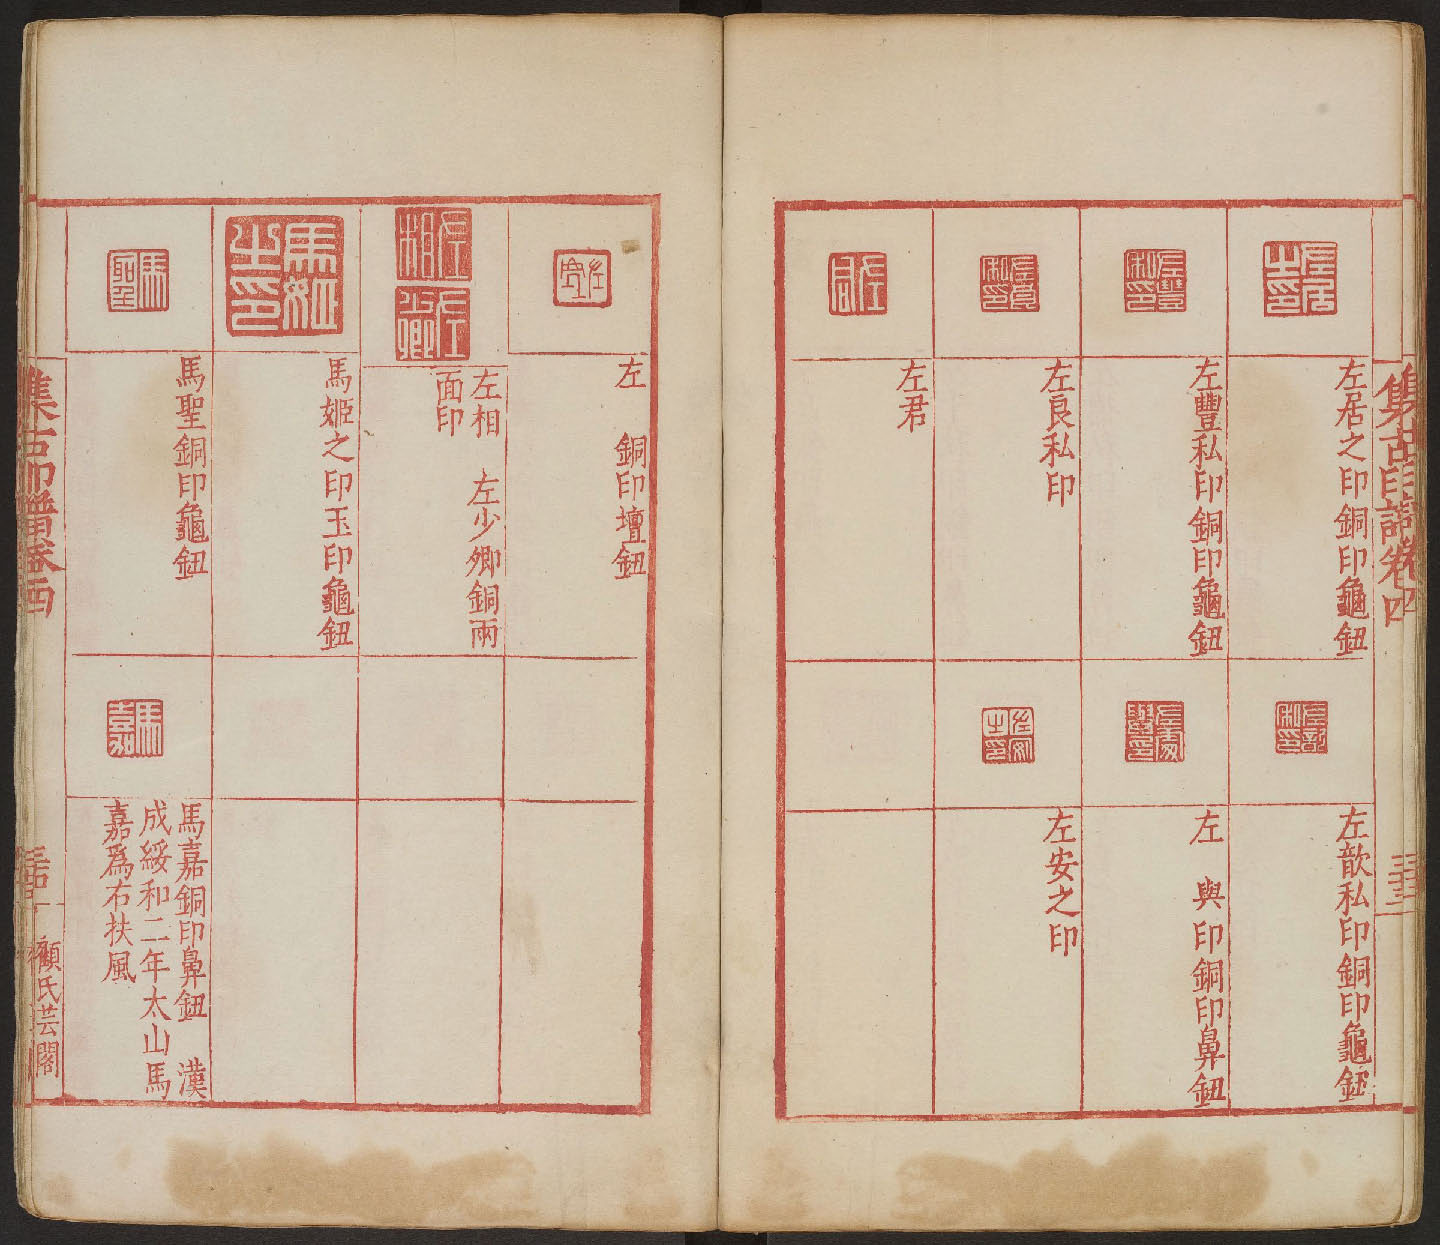 集古印譜卷四
左居之印銅印龜鈕
左豐私印銅印龜鈕
左良私印
左君
左歆私印銅印龜鈕
左 與印銅印鼻鈕
左安之印
左 銅印壇鈕
左相 左少卿銅兩
面印
馬姬之印玉印龜鈕
馬聖銅印龜鈕
馬嘉銅印鼻鈕 漢
成綏和二年太山馬
嘉爲右扶風
集古印譜卷四
顧氏芸閣